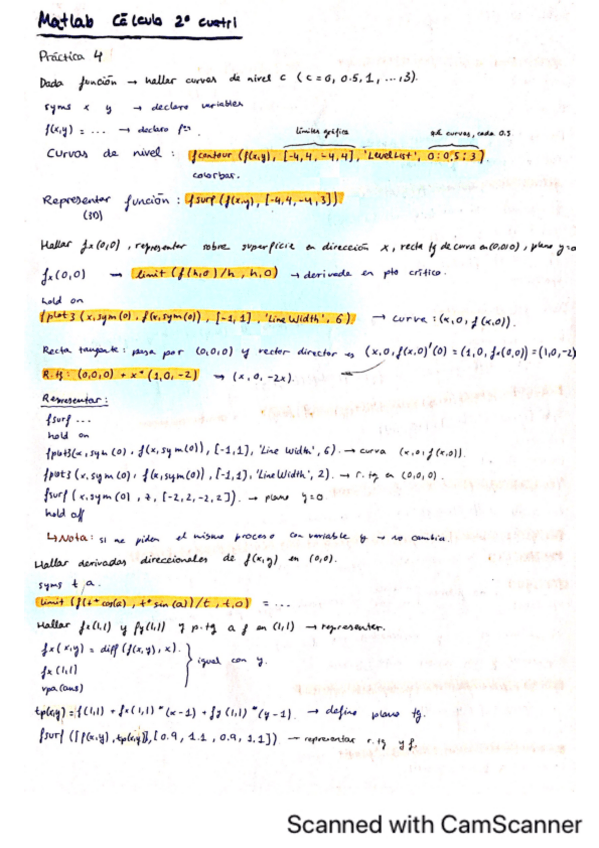 Matlab Cálculo 2º cuatri
Práctica 4
Dada función → hallar curvas de nivel c (c = 0, 0.5, 1, ..., 3).
syms x y → declaro variables
f(x,y) = ... → declaro fºⁿ.
límites gráfica
nº curvas, cada 0.5
Curvas de nivel : fcontour (f(x,y), [-4,4,-4,4], 'LevelList', 0:0.5:3).
colorbar.
Representar función : fsurf (f(x,y), [-4,4,-4,3])
(3D)
Hallar fx(0,0), representar sobre superficie en dirección x, recta tg de curva en (0,0,0), plano y=0
fx(0,0) → limit (f(h,0)/h, h,0) → derivada en pto crítico.
hold on
fplot3 (x, sym(0), f(x,sym(0)), [-1,1], 'Line Width', 6) → curva : (x,0, f(x,0)).
Recta tangente : pasa por (0,0,0) y vector director → (x,0,f(x,0))'(0) = (1,0,fx(0,0)) = (1,0,-2)
R.tg : (0,0,0) + x*(1,0,-2) → (x, 0, -2x).
Representar :
fsurf ...
hold on
fplot3(x, sym(0), f(x,sym(0)), [-1,1], 'Line Width', 6). → curva (x,0, f(x,0)).
fplot3 (x, sym(0), f(x,sym(0)), [-1,1], 'Line Width', 2). → r.tg en (0,0,0).
fsurf (x, sym(0), z, [-2,2,-2,2]). → plano y=0
hold off
↳ Nota : si me piden el mismo proceso con variable y → no cambia.
Hallar derivadas direccionales de f(x,y) en (0,0).
syms t a.
limit (f(t*cos(a), t*sin(a))/t, t,0) = ...
Hallar fx(1,1) y fy(1,1) y p.tg a f en (1,1) → representar.
fx(x,y) = diff (f(x,y), x).
fx(1,1)
igual con y.
vpa(ans)
tp(x,y) = f(1,1) + fx(1,1)*(x-1) + fy(1,1)*(y-1). → define plano tg.
fsurf ([f(x,y), tp(x,y)], [0.9, 1.1, 0.9, 1.1]) → representar r.tg y f.
Scanned with CamScanner